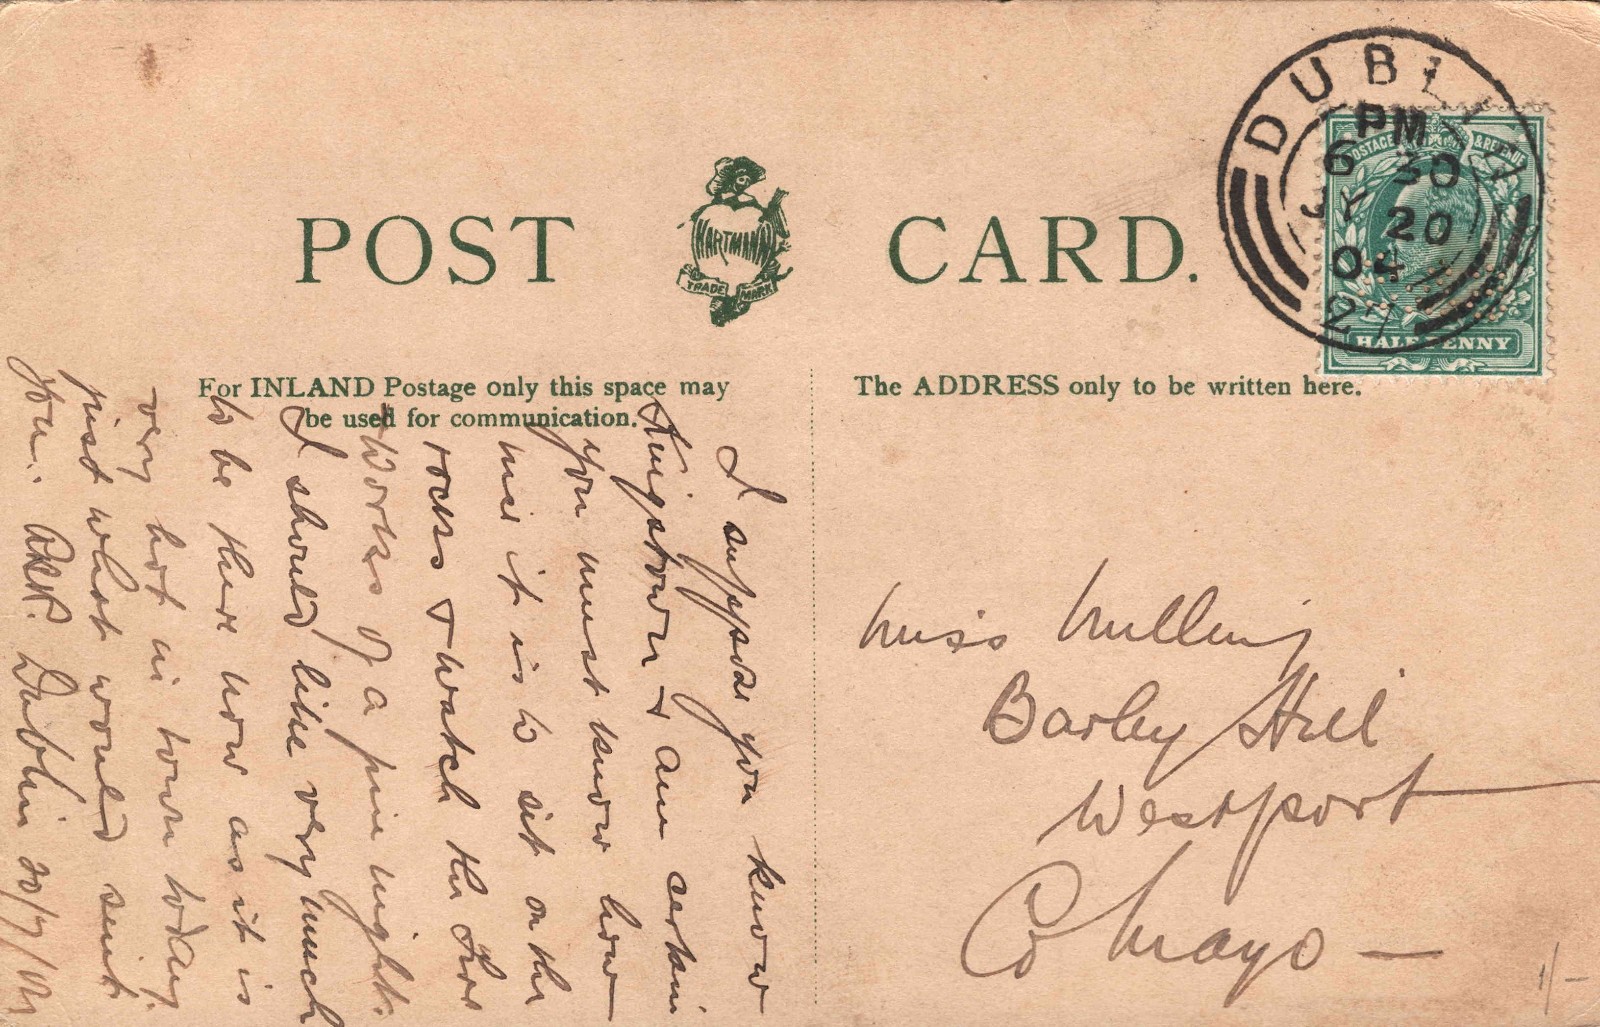 POST CARD.
HARTMANN
TRADE MARK
DUBLIN
PM
6 30
JY 20
04
27
POSTAGE & REVENUE
HALFPENNY
For INLAND Postage only this space may
be used for communication.
The ADDRESS only to be written here.
I suppose you know
Kingstown & am certain
you must know how
nice it is to sit on the
rocks & watch the Fire
Works of a fine night.
I should like very much
to be there now as it is
very hot in town today.
just what would suit
you. Dublin 20/7/04
Miss Mullins
Barley Hill
Westport
Co Mayo —
1/-